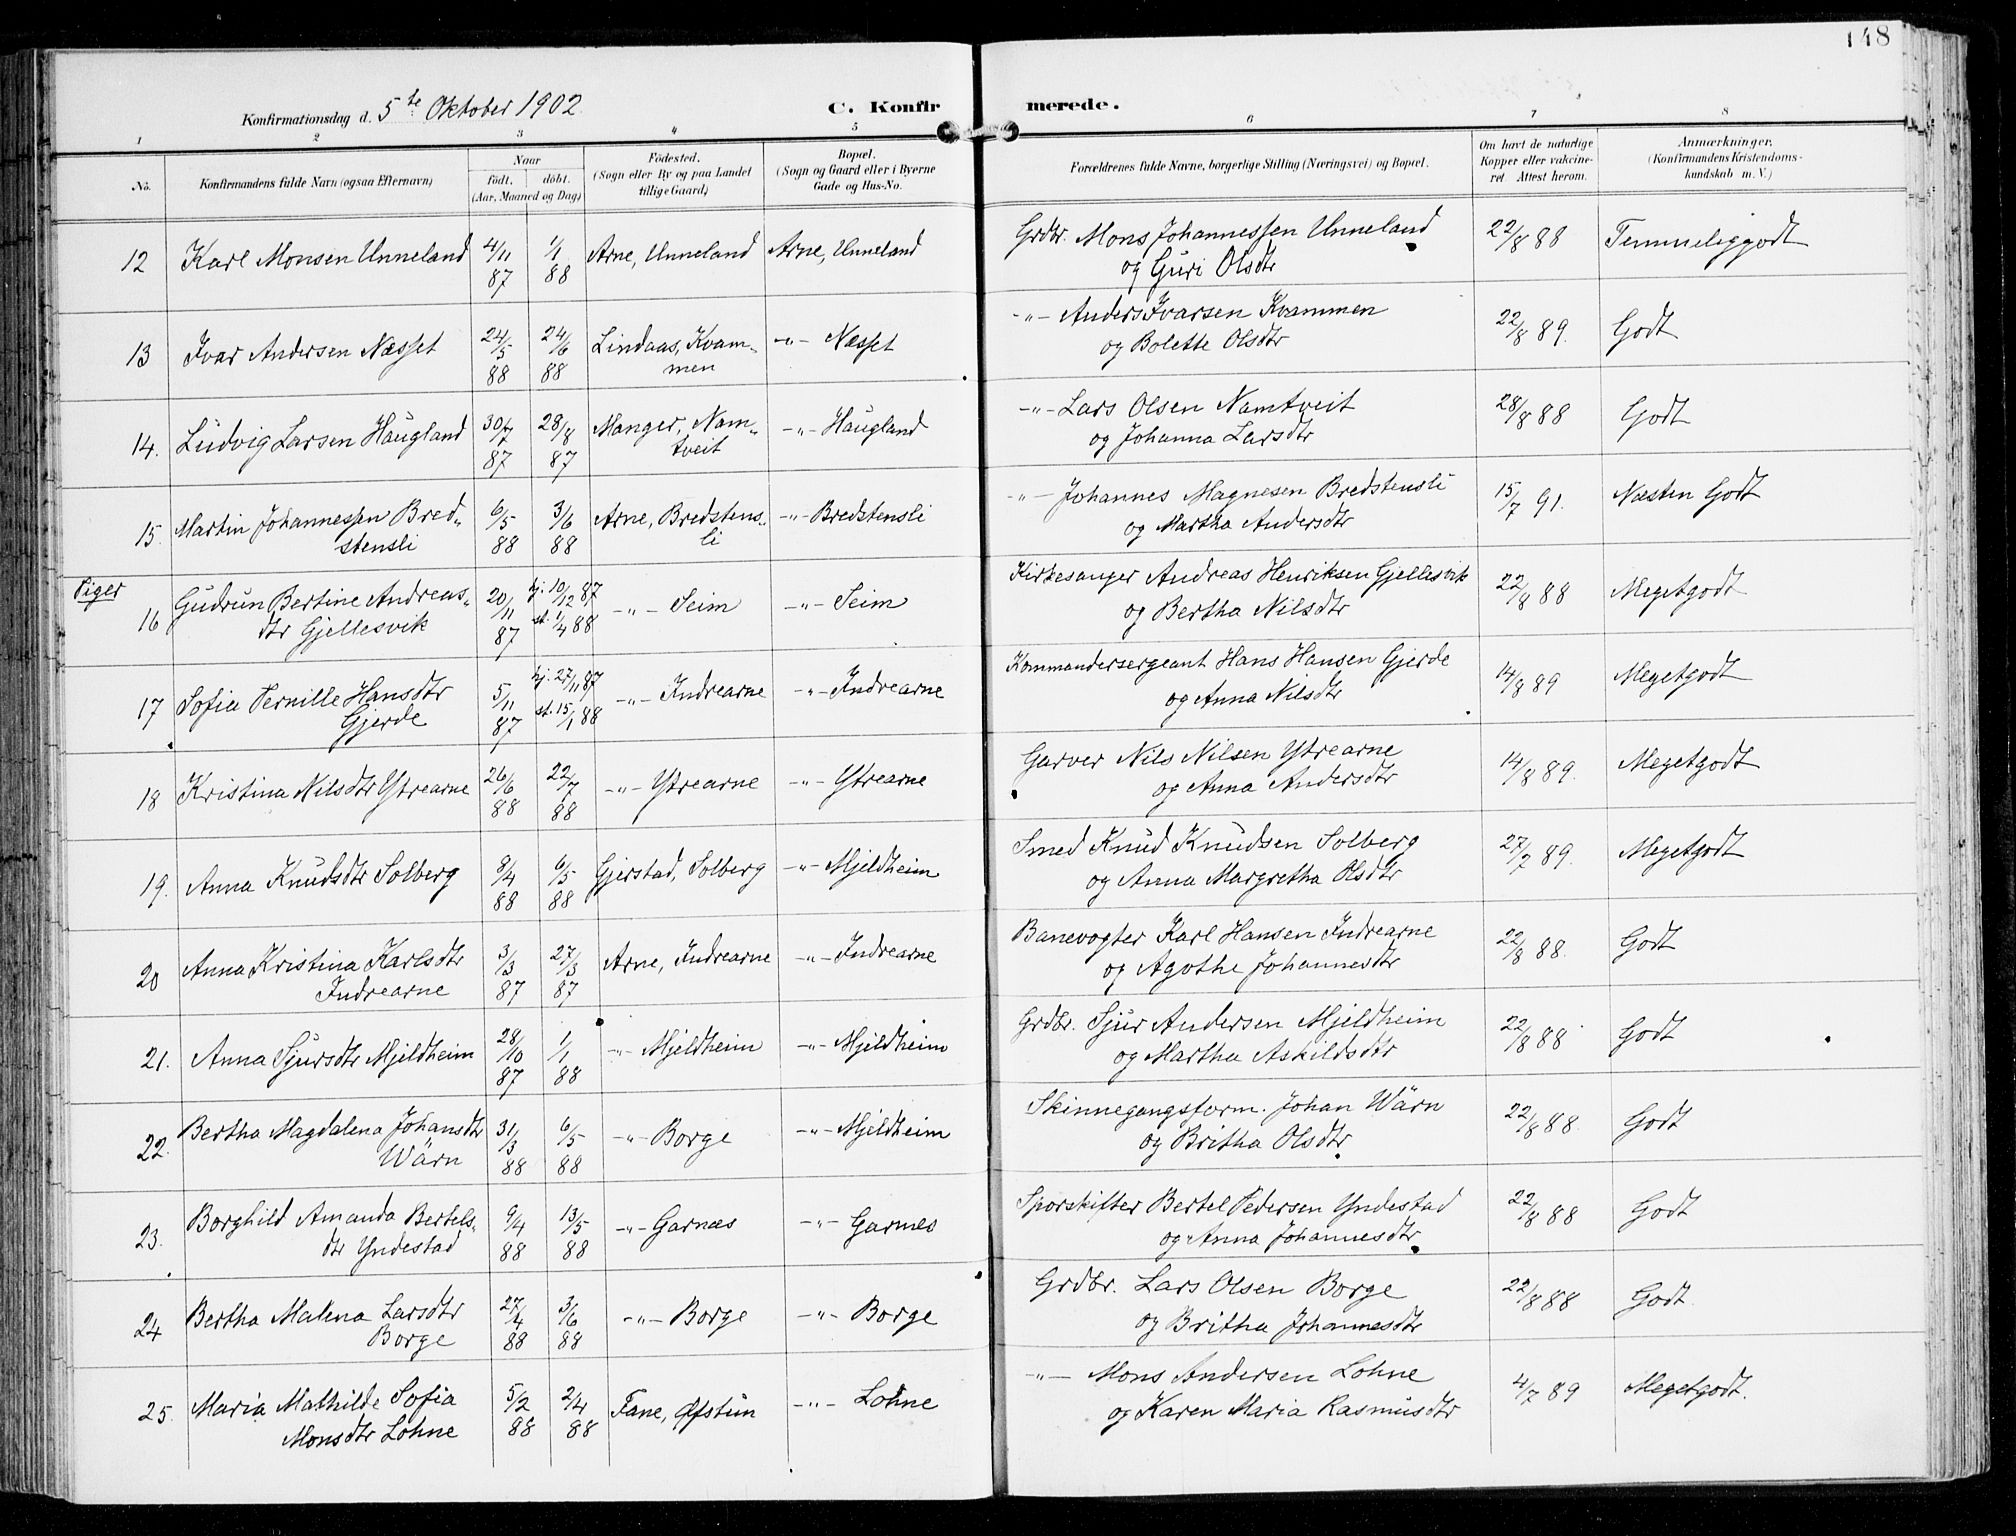 148
Konfirmationsdag d. 5te Oktober 1902. C. Konfirmerede.
1 2 3 4 5 6 7 8
No. Konfirmandens fulde Navn (ogsaa Efternavn) Naar født. døbt. (Aar, Maaned og Dag) Fødested. (Sogn eller By og paa Landet tillige Gaard) Bopæl. (Sogn og Gaard eller i Byerne Gade og Hus-No. Forældrenes fulde Navne, borgerlige Stilling (Næringsvei) og Bopæl. Om havt de naturlige Kopper eller vakcineret. Attest herom. Anmærkninger. (Konfirmandens Kristendomskundskab m. V.)
12 Karl Monsen Unneland 4/11 87 1/1 88 Arne, Unneland Arne, Unneland Grdbr. Mons Johannessen Unneland 22/8 88 Temmeliggodt
og Guri Olsdtr
13 Ivar Andersen Næsset 24/5 88 24/6 88 Lindaas, Kvam„ -"- Næsset -"- Anders Ivarsen Kvammen 22/8 89. Godt
men og Bolette Olsdtr
14. Ludvig Larsen Haugland 30/7 87 28/8 87 Manger, Nam„ -"- Haugland -"- Lars Olsen Namtveit 28/8 88 Godt
tveit og Johanna Larsdtr
15. Martin Johannessen Bred„ 6/5 88 3/6 88 Arne, Bredstens„ -"- Bredstensli -"- Johannes Magnesen Bredstensli 15/7 91. Næsten Godt
stensli li og Martha Andersdtr
Piger
16 Gudrun Bertine Andreas„ 20/11 87 hj. 10/12 87 st. 1/4 88 -"- Seim -"- Seim Kirkesanger Andreas Henriksen Gjellesvik 22/8 88 Megetgodt
dtr Gjellesvik og Bertha Nilsdtr
17 Sofia Pernille Hansdtr 5/11 87 hj. 27/11 87 st. 15/1 88 -"- Indrearne -"- Indrearne Kommandersergeant Hans Hansen Gjerde 14/8 89 Megetgodt
Gjerde og Anna Nilsdtr
18 Kristina Nilsdtr Ytrearne 26/6 88 22/7 88 -"- Ytrearne -"- Ytrearne Garver Nils Nilsen Ytrearne 14/8 89. Megetgodt
og Anna Andersdtr
19. Anna Knudsdtr Solberg 8/4 88 6/5 88 Gjerstad, Solberg -"- Mjeldheim Smed Knud Knudsen Solberg 27/7 89. Megetgodt
og Anna Margretha Olsdtr
20 Anna Kristina Karlsdtr 3/3 87 27/3 87 Arne, Indrearne -"- Indrearne Banevogter Karl Hansen Indrearne 22/8 88. Godt
Indrearne og Agothe Johannesdtr
21. Anna Sjursdtr Mjeldheim 28/10 87 1/1 88 -"- Mjeldheim -"- Mjeldheim Grdbr. Sjur Andersen Mjeldheim 22/8 88 Godt
og Martha Askildsdtr
22. Bertha Magdalena Johansdtr 31/3 88 6/5 88 -"- Borge -"- Mjeldheim Skinnegangsform. Johan Wärn 22/8 88. Godt
Wärn og Britha Olsdtr
23. Borghild Amanda Bertels„ 9/4 88 13/5 88 -"- Garnæs -"- Garnes Sporskifter Bertel Pedersen Yndestad 22/8 88 Godt
dtr Yndestad og Anna Johannesdtr
24 Bertha Malena Larsdtr 27/4 88 3/6 88 -"- Borge -"- Borge Grdbr. Lars Olsen Borge 22/8 88 Godt.
Borge og Britha Johannesdtr
25. Maria Mathilde Sofia 5/2 88 2/4 88 Fane, Øfstun -"- Lohne -"- Mons Andersen Lohne 4/7 89 Megetgodt.
Monsdtr Lohne og Karen Maria Rasmusdtr